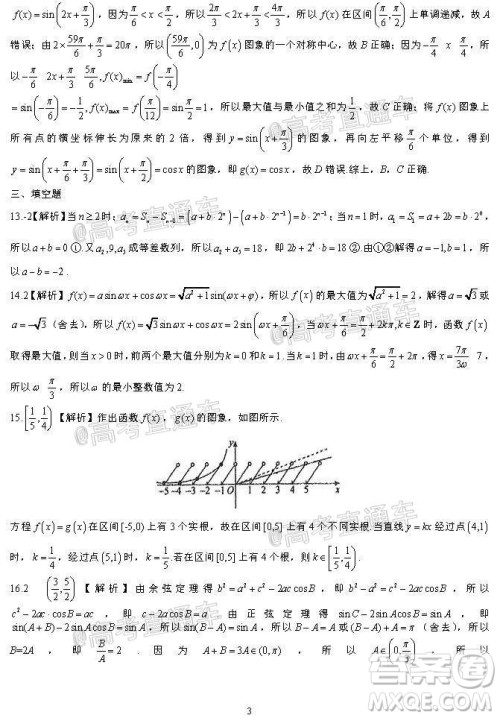 f(x)=sin(2x+π/3)，因为π/6<x<π/2，所以2π/3<2x+π/3<4π/3，所以f(x)在区间(π/6,π/2)上单调递减，故A
错误；由2×59π/6+π/3=20π，所以(59π/6,0)为f(x)图象的一个对称中心，故B正确；因为-π/4 x π/4，所
以-π/6 2x+π/3 5π/6, f(x)min=f(-π/4)
=sin(-π/6)=-1/2, f(x)max=f(π/12)=sin π/2=1，所以最大值与最小值之和为1/2，故C正确；将f(x)图象上
所有点的横坐标伸长为原来的2倍，得到y=sin(x+π/3)的图象，再向左平移π/6个单位，得到
y=sin(x+π/6+π/3)=sin(x+π/2)=cos x的图象，即g(x)=cos x，故D错误.综上，B、C正确.
三、填空题
13.-2【解析】当n≥2时；
所以a+b=0 ①又a₂,9,a₅成等差数列，所以a₂+a₅=18，即2b+2⁴·b=18 ②.由①②解得a=-1,b=1，所
以a-b=-2.
14.2【解析】f(x)=a sin ωx+cos ωx=√(a²+1) sin(ωx+φ)，所以f(x)的最大值为√(a²+1)=2，解得a=√3或
a=-√3（舍去），所以f(x)=√3 sin ωx+cos ωx=2sin(ωx+π/6)，当ωx+π/6=π/2+2kπ,k∈Z时，函数f(x)
取得最大值，则当x>0时，前两个最大值分别为k=0和k=1．当k=1时，ωx+π/6=π/2+2π，得x=7π/3ω 7，
所以ω π/3，所以ω的最小整数值为2.
15.[1/5,1/4)【解析】作出函数f(x)，g(x)的图象，如图所示.
y
-5 -4 -3 -2 -1 O 1 2 3 4 5 x
方程f(x)=g(x)在区间[-5,0)上有3个实根，故在区间[0,5]上有4个不同实根.当直线y=kx经过点(4,1)
时，k=1/4，经过点(5,1)时，k=1/5.若在区间[0,5]上有4个根，则k∈[1/5,1/4).
16.2 (3/2,5/2) 【解析】由余弦定理得b²=a²+c²-2ac cos B，即b²=a²+c²-2ac cos B，所以
c²-2ac·cos B=ac，即c-2a cos B=a 由正弦定理得sin C-2sin A cos B=sin A，即
sin(A+B)-2sin A cos B=sin A，所以sin(B-A)=sin A，所以B-A=A或B-A+A=π（舍去），所以
B=2A，即B/A=2．因为A+B=3A∈(0,π)，所以A∈(0,π/3)，所以
3
@高考直通车
@高考直通车
@高考直通车
答案圈
MXQE.COM